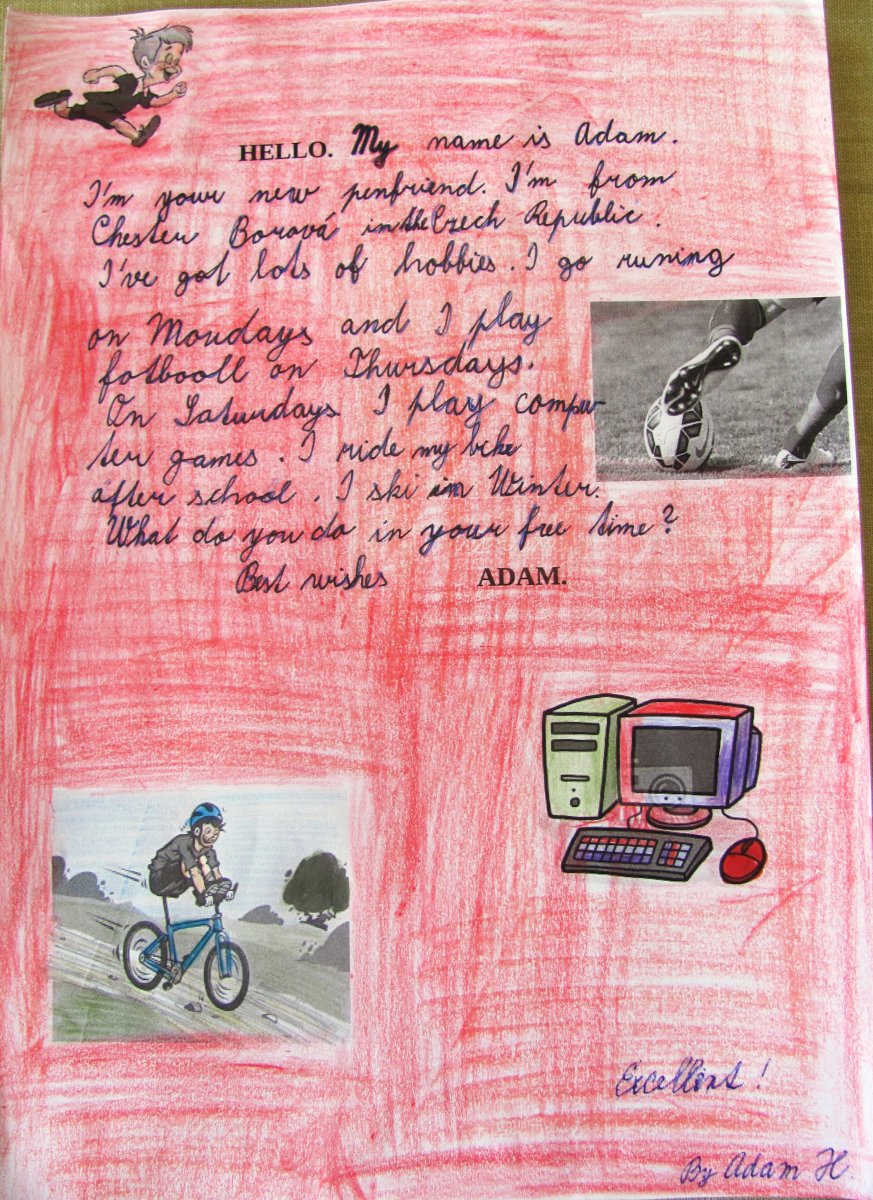 HELLO. My name is Adam.
I'm your new penfriend. I'm from
Chester Borová in the Czech Republic.
I've got lots of hobbies. I go runing
on Mondays and I play
fotbooll on Thursdays.
On Saturdays I play compu-
ter games. I ride my bike
after school. I ski in Winter.
What do you do in your free time?
Best wishes ADAM.
Excellent!
By Adam H.